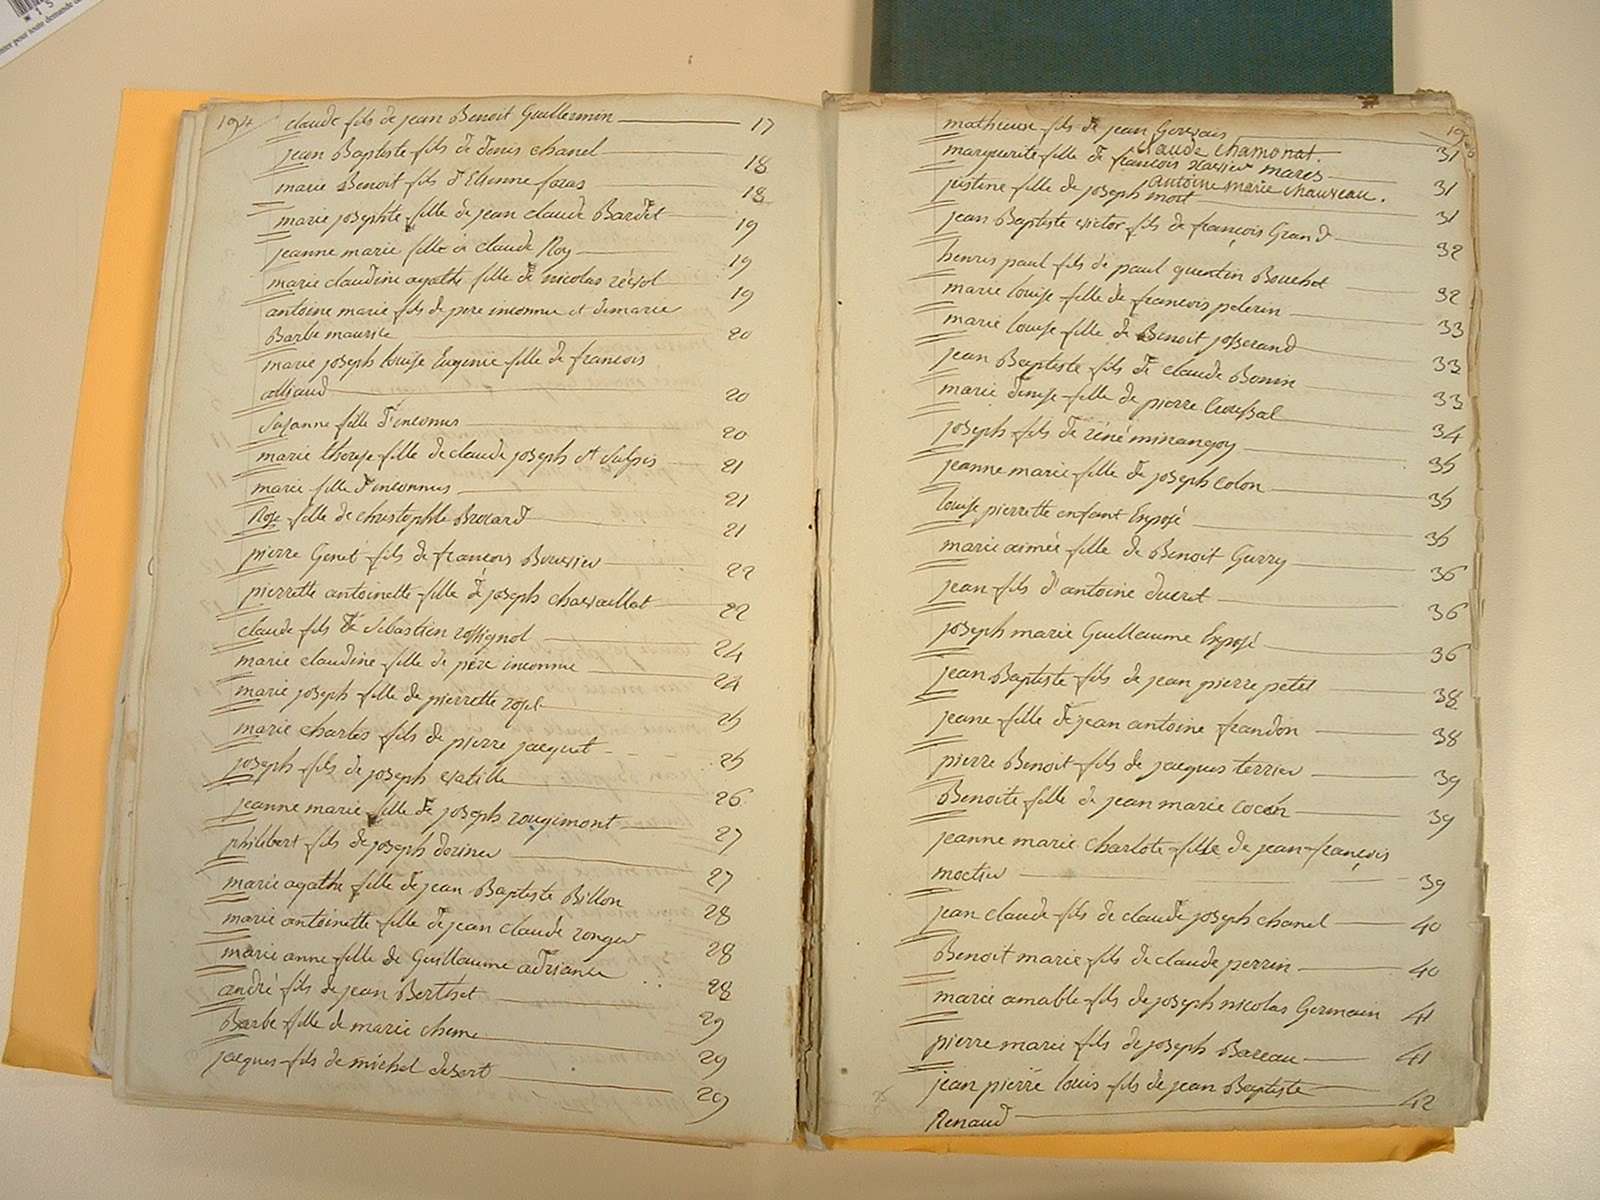 194
claude fils de jean Benoit Guillermin 17
jean Baptiste fils de denis chanel 18
marie Benoit fils d'Etienne foras 18
marie josephte fille de jean claude Bardet 19
jeanne marie fille à claude Roy 19
marie claudine agathe fille de nicolas révol 19
antoine marie fils de pere inconnu et de marie
Barbe maurice 20
marie joseph louise Eugenie fille de francois
20
Susanne fille d'inconnus 20
marie therese fille de claude joseph St Sulpis 21
marie fille d'inconnus 21
Rose fille de christophle Brocard 21
pierre Genet fils de françois Bouvier 22
pierrette antoinette fille de joseph chavaillot 22
claude fils de Sebastien rossignol 24
marie claudine fille de père inconnu 24
marie joseph fille de pierrette 25
marie charles fils de pierre jacquet 25
joseph fils de joseph 26
jeanne marie fille de joseph rougimont 27
philibert fils de joseph dorinet 27
marie agathe fille de jean Baptiste Billon 28
marie antoinette fille de jean claude ronger 28
marie anne fille de Guillaume adrianne 28
andré fils de jean Berthet 29
Barbe fille de marie cheme 29
jacques fils de michel desert 29
mathieux fils de jean Gervais 31
claude chamonat.
marguerite fille de françois xavier mares 31
Antoine marie chauveau.
justine fille de joseph moit 31
jean Baptiste victor fils de françois Grand 32
henris paul fils de paul quentin Bouchot 32
marie louise fille de francois pelerin 33
marie louise fille de Benoit josserand 33
jean Baptiste fils de claude Bonin 33
marie denise fille de pierre 34
joseph fils de réné mirangoy 35
jeanne marie fille de joseph colon 35
louise pierrette enfant Exposé 35
marie aimée fille de Benoit Gurry 36
jean fils d'antoine ducret 36
joseph marie Guillaume Exposé 36
jean Baptiste fils de jean pierre petit 38
jeane fille de jean antoine frandon 38
pierre Benoit fils de jacques terrier 39
Benoite fille de jean marie cocar 39
jeanne marie charlote fille de jean françois
moctier 39
jean claude fils de claude joseph chanel 40
Benoit marie fils de claude perrin 40
marie amable fils de joseph nicolas Germain 41
pierre marie fils de joseph Bareau 41
jean pierre louis fils de jean Baptiste
Renaud 42